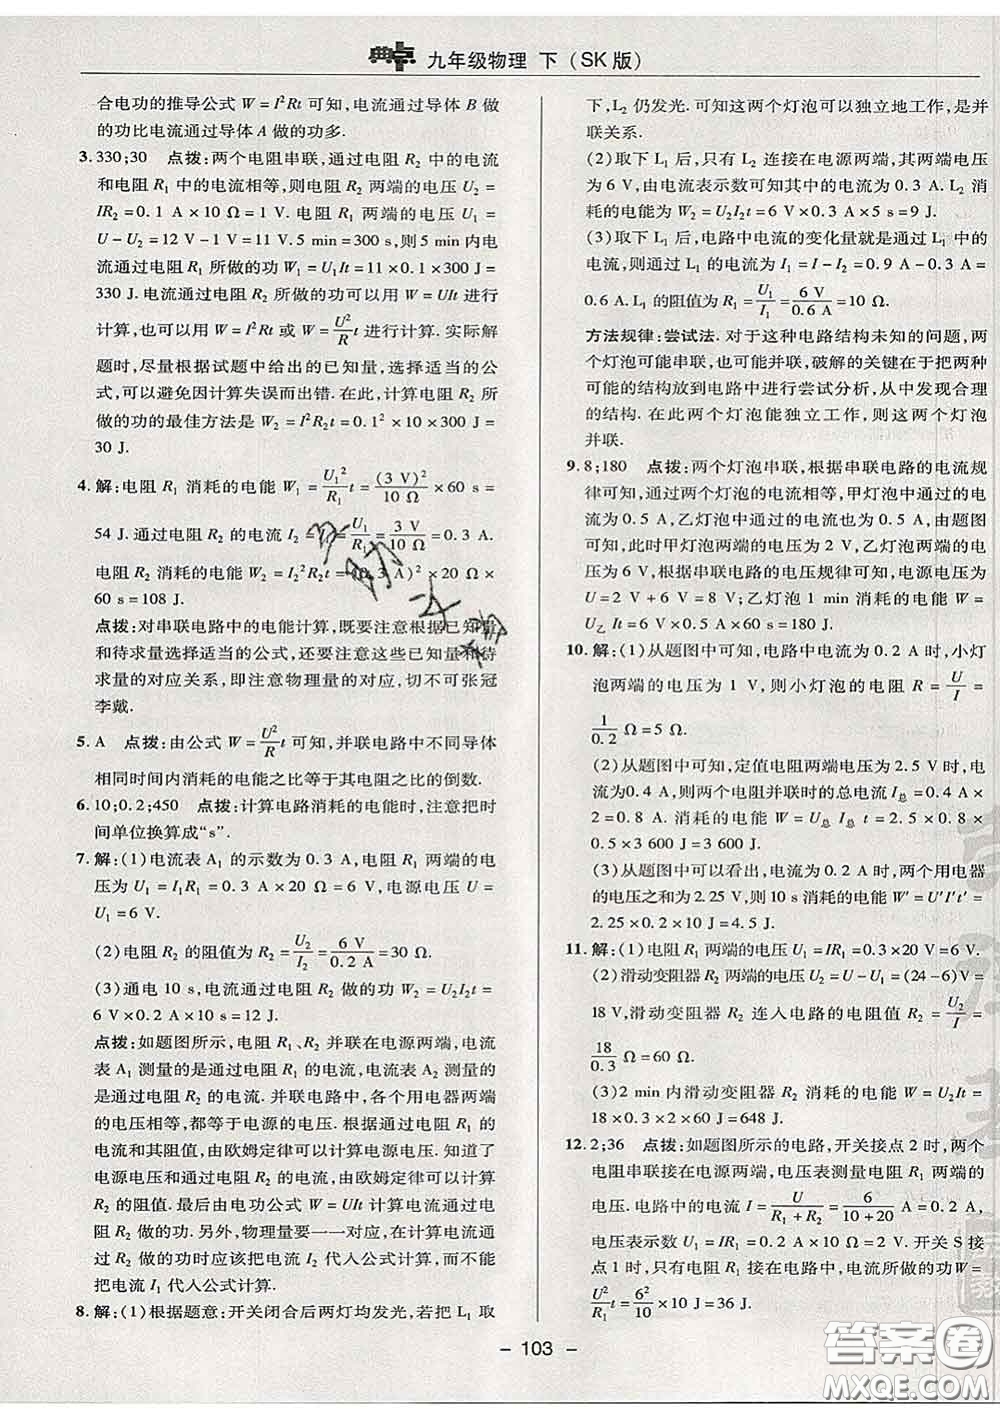 典中点 九年级物理 下(SK版)
合电功的推导公式 W=I²Rt 可知,电流通过导体 B 做
的功比电流通过导体 A 做的功多.
3. 330;30 点拨:两个电阻串联,通过电阻 R₂ 中的电流
和电阻 R₁ 中的电流相等,则电阻 R₂ 两端的电压 U₂=
IR₂=0.1 A×10 Ω=1 V. 电阻 R₁ 两端的电压 U₁=
U-U₂=12 V-1 V=11 V. 5 min=300 s,则 5 min 内电
流通过电阻 R₁ 所做的功 W₁=U₁It=11×0.1×300 J=
330 J. 电流通过电阻 R₂ 所做的功可以用 W=UIt 进行
计算,也可以用 W=I²Rt 或 W=U²/R t 进行计算. 实际解
题时,尽量根据试题中给出的已知量,选择适当的公
式,可以避免因计算失误而出错. 在此,计算电阻 R₂ 所
做的功的最佳方法是 W₂=I²R₂t=0.1²×10×300 J=
30 J.
4. 解:电阻 R₁ 消耗的电能 W₁=U₁²/R₁ t=(3 V)²/10 Ω×60 s=
54 J. 通过电阻 R₂ 的电流 I₂=I₁=U₁/R₁=3 V/10 Ω=0.3 A.
电阻 R₂ 消耗的电能 W₂=I₂²R₂t=(0.3 A)²×20 Ω×
60 s=108 J.
点拨:对串联电路中的电能计算,既要注意根据已知量
和待求量选择适当的公式,还要注意这些已知量和待
求量的对应关系,即注意物理量的对应,切不可张冠
李戴.
5. A 点拨:由公式 W=U²/R t 可知,并联电路中不同导体
相同时间内消耗的电能之比等于其电阻之比的倒数.
6. 10;0.2;450 点拨:计算电路消耗的电能时,注意把时
间单位换算成“s”.
7. 解:(1)电流表 A₁ 的示数为 0.3 A,电阻 R₁ 两端的电
压为 U₁=I₁R₁=0.3 A×20 Ω=6 V,电源电压 U=
U₁=6 V.
(2)电阻 R₂ 的阻值为 R₂=U₂/I₂=6 V/0.2 A=30 Ω.
(3)通电 10 s,电流通过电阻 R₂ 做的功 W=U₂I₂t=
6 V×0.2 A×10 s=12 J.
点拨:如题图所示,电阻 R₁、R₂ 并联在电源两端,电流
表 A₁ 测量的是通过电阻 R₁ 的电流,电流表 A₂ 测量的
是通过电阻 R₂ 的电流. 并联电路中,各个用电器两端
的电压相等,都等于电源的电压. 根据通过电阻 R₁ 的
电流和其阻值,由欧姆定律可以计算电源电压. 知道了
电源电压和通过电阻 R₂ 的电流,由欧姆定律可以计算
R₂ 的阻值. 最后由电功公式 W=UIt 计算电流通过电
阻 R₂ 做的功. 另外,物理量要一一对应,在计算电流通
过 R₂ 做的功时应该把电流 I₂ 代人公式计算,而不能
把电流 I₁ 代人公式计算.
8. 解:(1)根据题意:开关闭合后两灯均发光,若把 L₁ 取
下,L₂ 仍发光. 可知这两个灯泡可以独立地工作,是并
联关系.
(2)取下 L₁ 后,只有 L₂ 连接在电源两端,其两端电压
为 6 V,由电流表示数可知其中的电流为 0.3 A. L₂ 消
耗的电能为 W₂=U₂I₂t=6 V×0.3 A×5 s=9 J.
(3)取下 L₁ 后,电路中电流的变化量就是通过 L₁ 中的
电流,则通过 L₁ 的电流为 I₁=I-I₂=0.9 A-0.3 A=
0.6 A. L₁ 的阻值为 R₁=U₁/I₁=6 V/0.6 A=10 Ω.
方法规律:尝试法. 对于这种电路结构未知的问题,两
个灯泡可能串联,也可能并联,破解的关键在于把两种
可能的结构放到电路中进行尝试分析,从中发现合理
的结构. 在此两个灯泡能独立工作,则这两个灯泡
并联.
9. 8;180 点拨:两个灯泡串联,根据串联电路的电流规
律可知,通过两个灯泡的电流相等,甲灯泡中通过的电
流为 0.5 A,乙灯泡中通过的电流也为 0.5 A,由题图
可知,此时甲灯泡两端的电压为 2 V,乙灯泡两端的电
压为 6 V,根据串联电路的电压规律可知,电源电压为
U=2 V+6 V=8 V;乙灯泡 1 min 消耗的电能 W=
U乙 It=6 V×0.5 A×60 s=180 J.
10. 解:(1)从题图中可知,电路中电流为 0.2 A 时,小灯
泡两端的电压为 1 V,则小灯泡的电阻 R=U/I=
1/0.2 Ω=5 Ω.
(2)从题图中可知,定值电阻两端电压为 2.5 V 时,电
流为 0.4 A,则两个电阻并联时的总电流 I总=0.4 A×
2=0.8 A. 消耗的电能 W=U总 I总 t=2.5×0.8×
0.5×3 600 J=3 600 J.
(3)从题图中可以看出,电流为 0.2 A 时,两个用电器
的电压之和为 2.25 V,则 10 s 消耗的电能 W′=U′I′t′=
2.25×0.2×10 J=4.5 J.
11. 解:(1)电阻 R₁ 两端的电压 U₁=IR₁=0.3×20 V=6 V.
(2)滑动变阻器 R₂ 两端的电压 U₂=U-U₁=(24-6)V=
18 V,滑动变阻器 R₂ 连入电路的电阻值 R₂=U₂/I=
18/0.3 Ω=60 Ω.
(3)2 min 内滑动变阻器 R₂ 消耗的电能 W=U₂It=
18×0.3×2×60 J=648 J.
12. 2;36 点拨:如题图所示的电路,开关接点 2 时,两个
电阻串联接在电源两端,电压表测量电阻 R₁ 两端的
电压. 电路中的电流 I=U/(R₁+R₂)=6/(10+20) A=0.2 A,
电压表示数 U₁=IR₁=0.2×10 V=2 V. 开关 S 接
点 1 时,只有电阻 R₁ 接在电路中,电流所做的功 W=
U²/R₁ t=6²/10×10 J=36 J.
- 103 -
答案圈
MXQE.COM